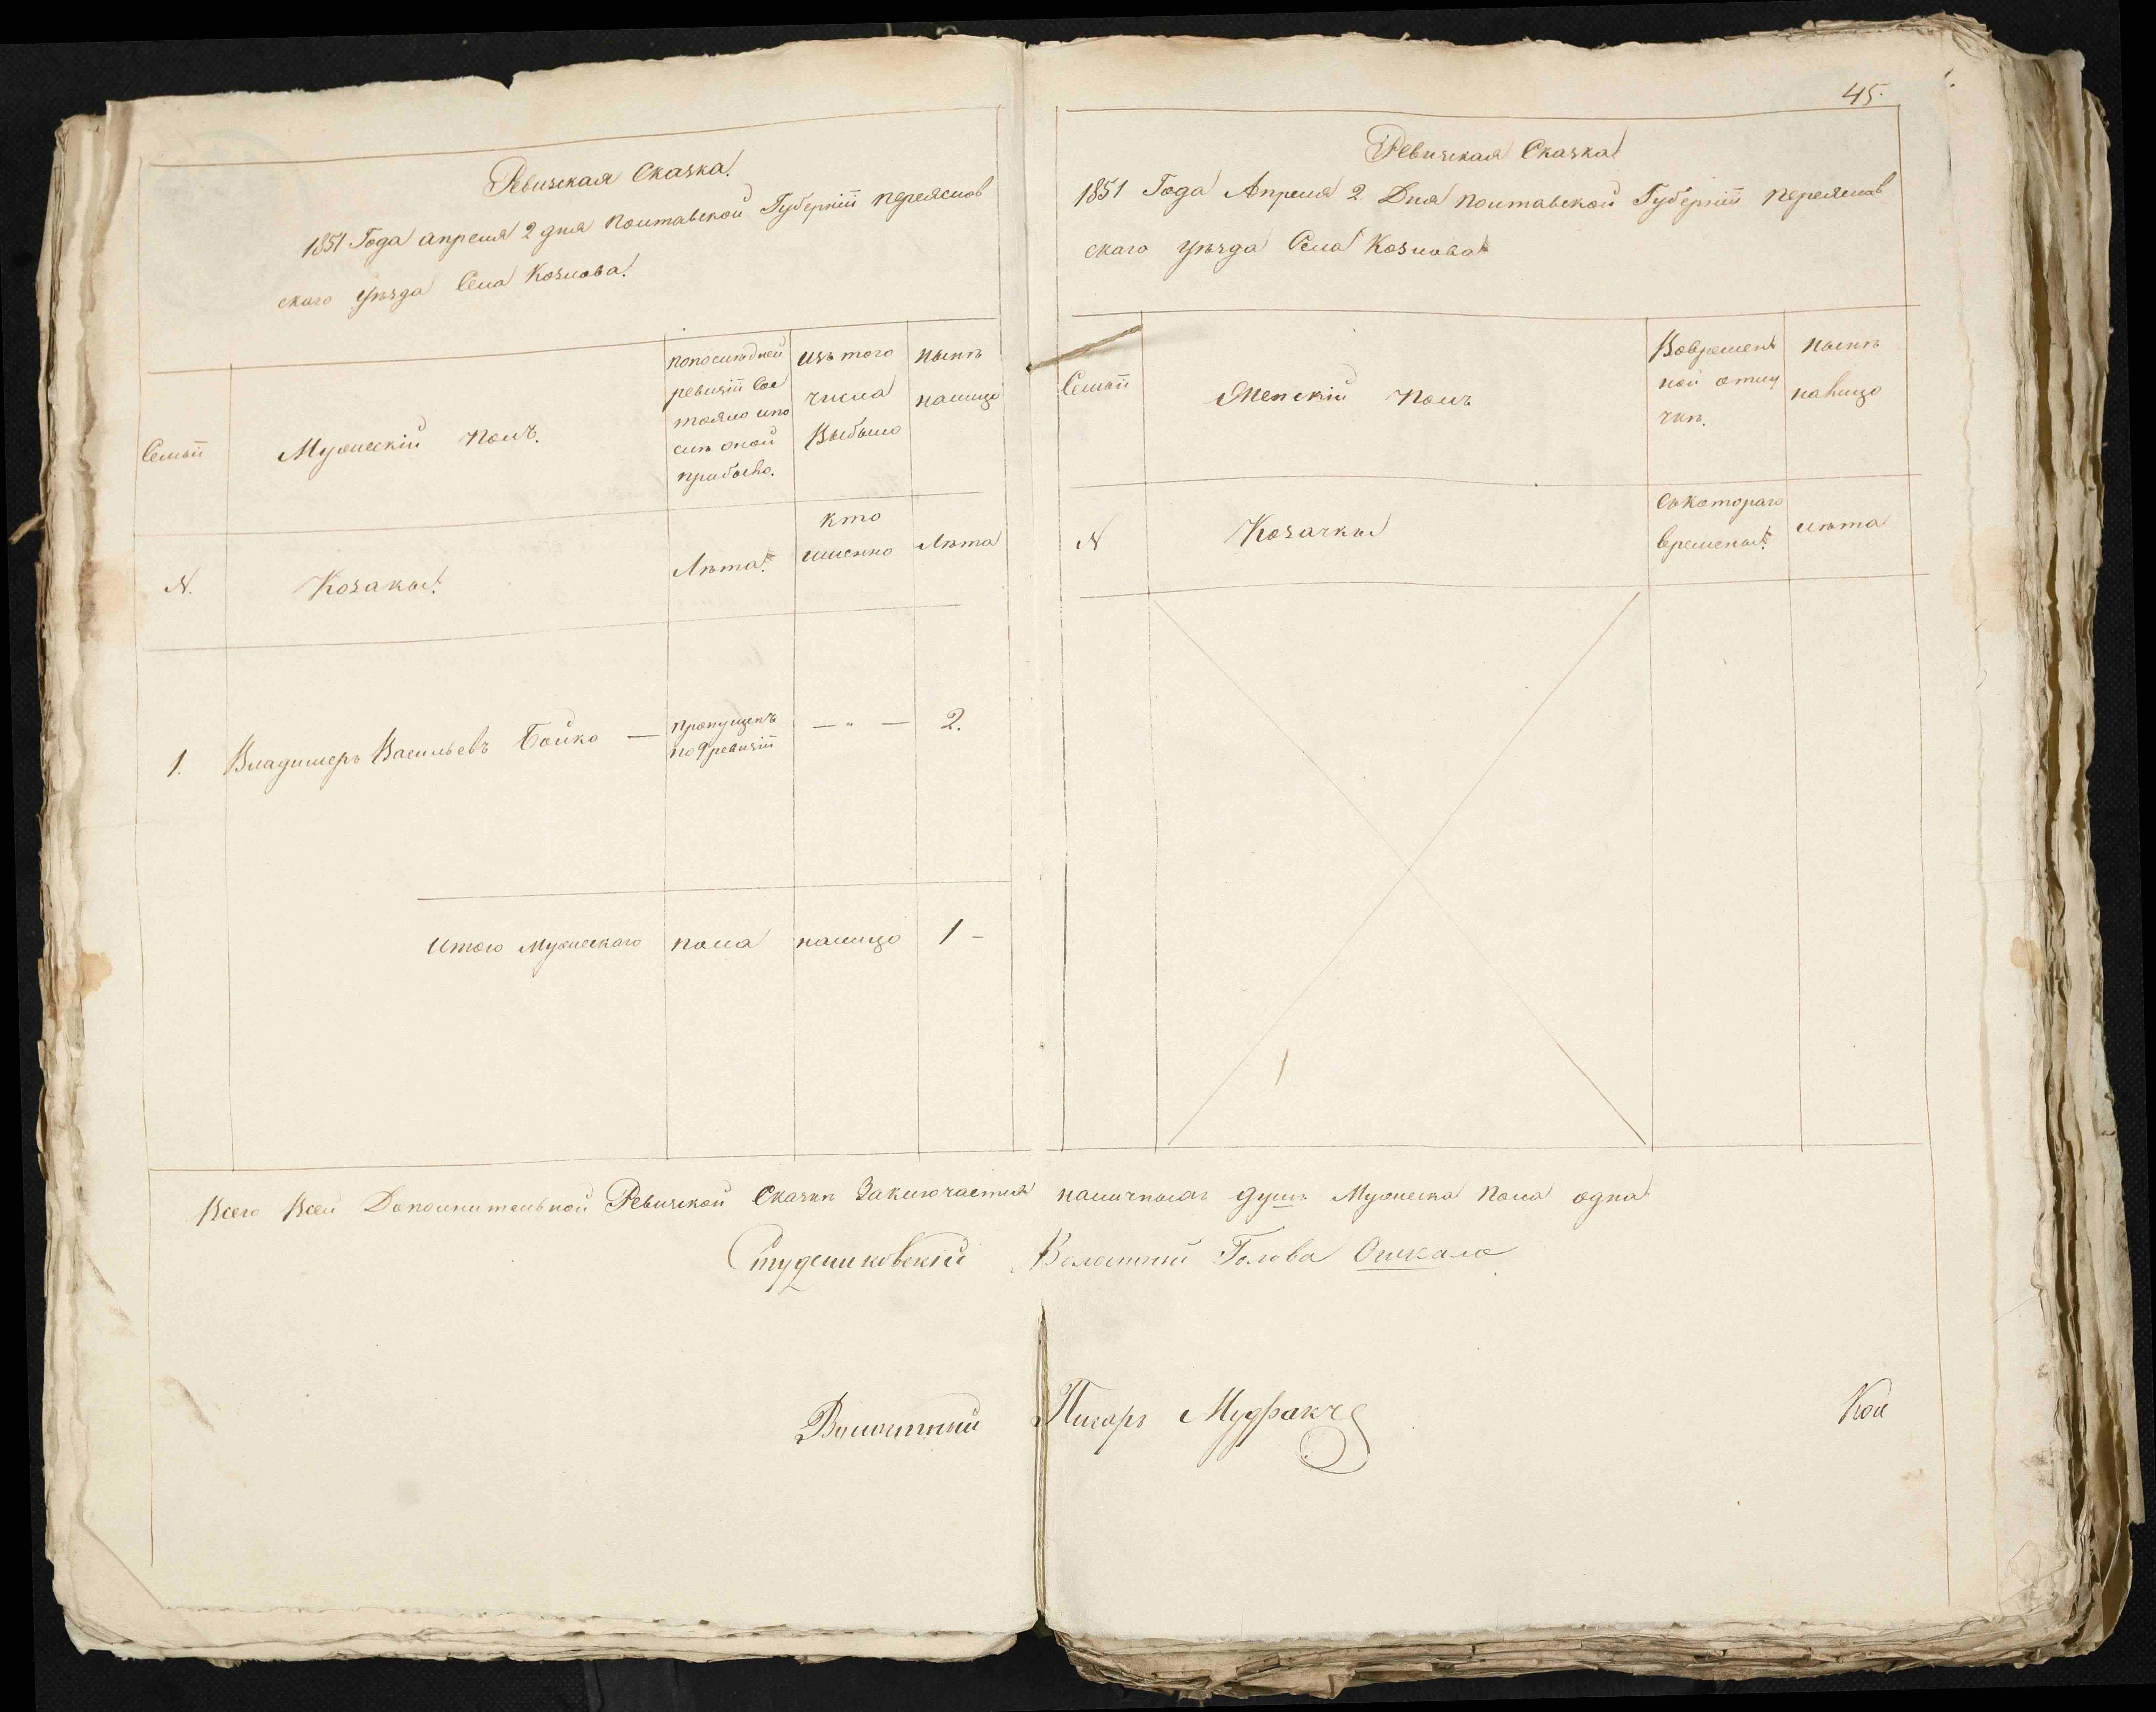 Ревизская Сказка.
1851 Года апреля 2 дня полтавской Губерніи переяслов
скаго уѣзда Села Козлова.
Семьи
Мужескій полъ.
попослѣдней
ревизіи сос
тояло ипо
слѣ оной
прибыло.
изъ того
числа
Выбыло
нынѣ
налицо
N.
Козаки.
Лѣта.
кто
именно
Лѣта
1.
Владимеръ Васильевъ Бойко —
пропущенъ
по 9 ревизіи
— „ —
2.
Итого Мужескаго пола налицо 1 –
45.
Ревизская Сказка
1851 Года Апреля 2 Дня полтавской Губерніи переяслов
скаго уѣзда Села Козлова
Семьи
Женскій полъ
Вовремен
ной отлу
чкѣ.
нынѣ
налицо
N
Козачки
Съкотораго
времены.
лѣта
Всего Всей Дополнительной Ревизской Сказкѣ Заключается наличныхъ душъ Мужеска пола одна
Студениковскій Волостный Голова Ошкало
Волостный Писарь
Кол